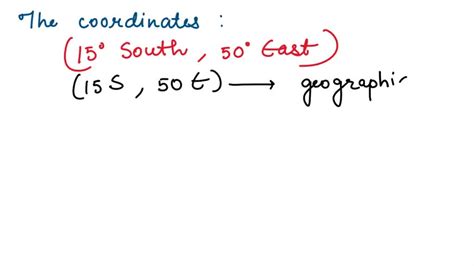 The coordinates :
(15° South , 50° East)
(15 S , 50 E) → geographi